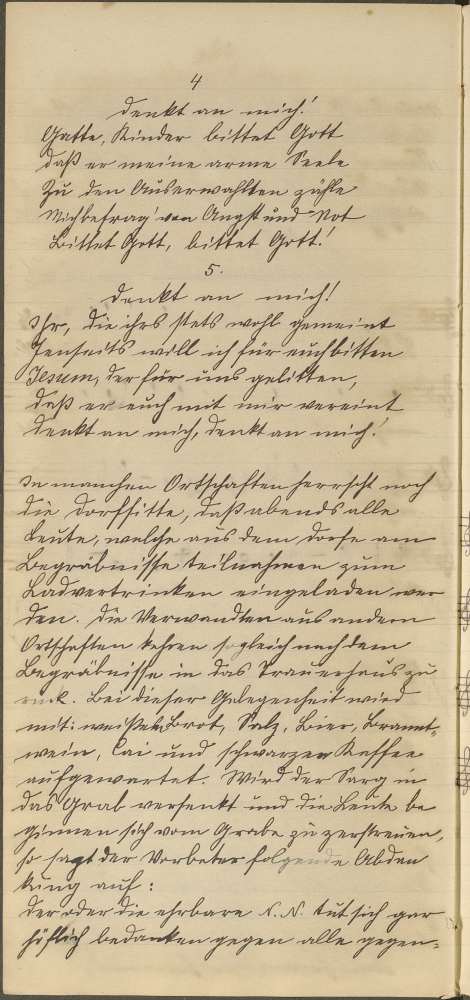 4
denkt an mich!
Gatte, Kinder bittet Gott
daß er meine arme Seele
Zu den Auserwahlten zähle
Mich befrag' von Angst und Not
Bittet Gott, bittet Gott!
5.
Denkt an mich!
Ihr, die ihrs stets wohl gemeint
Jenseits will ich für euch bitten
Jesum, der für uns gelitten,
daß er euch mit mir vereint
denkt an mich, denkt an mich!
In manchen Ortschaften herrscht noch
die Dorfsitte, daß abends alle
Leute, welche aus dem Dorfe am
Begräbnisse teilnahmen zum
Ladvertrinken eingeladen wer
den. Die Verwandten aus andern
Ortschaften kehren sogleich nach dem
Begräbnisse in das Trauerhaus zu
rück. Bei dieser Gelegenheit wird
mit: weißen Brot, Salz, Bier, Brannt-
wein, Cai und schwarzen Kaffee
aufgewartet. Wird der Sarg in
das Grab versenkt und die Leute be
ginnen sich vom Grabe zu zerstreuen,
so sagt der Vorbeter folgende Abdan
kung auf:
Der oder die ehrbare N. N. tut sich gar
höflich bedanken gegen alle gegen-